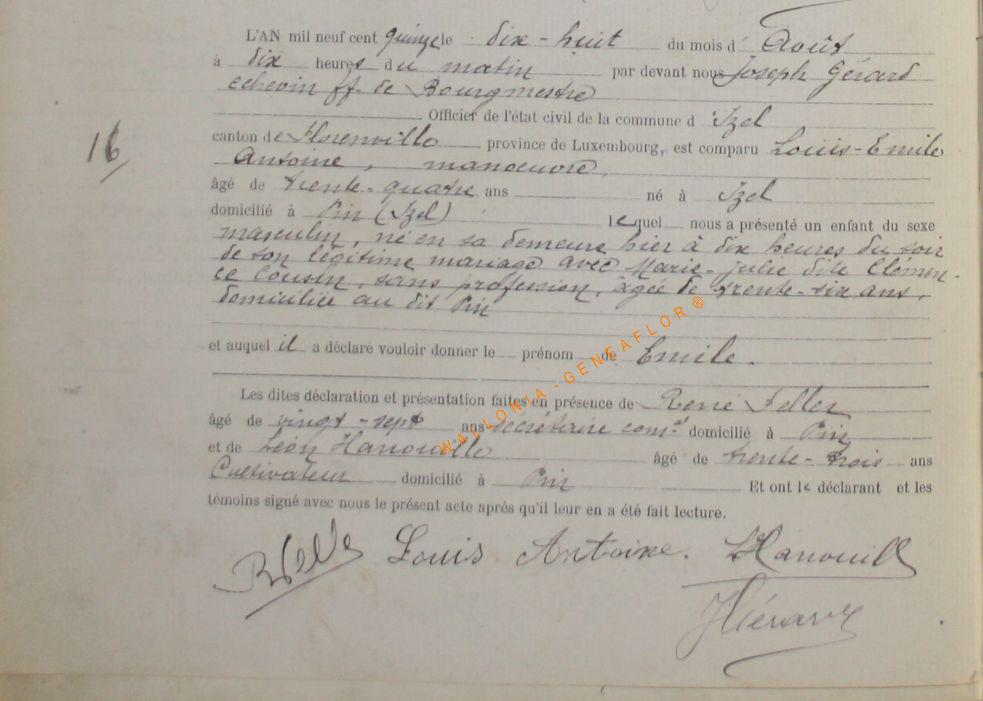 L'AN mil neuf cent quinze le dix-huit du mois d' Août
à dix heures du matin par devant nous Joseph Gérard
échevin ff. de Bourgmestre
Officier de l'état civil de la commune d Izel
16
canton de Florenville province de Luxembourg, est comparu Louis-Emile
Antoine, manoeuvre,
âgé de trente-quatre ans né à Izel
domicilié à Pin (Izel) lequel nous a présenté un enfant du sexe
masculin, né en sa demeure hier à dix heures du soir
de son légitime mariage avec Marie-Julie dite Clémen-
ce Cousin, sans profession, âgée de trente-six ans,
domiciliée au dit Pin
et auquel il a déclaré vouloir donner le prénom de Emile.
Les dites déclaration et présentation faites en présence de René Feller
âgé de vingt-sept ans secrétaire comal domicilié à Pin
et de Léon Hanouille âgé de trente-trois ans
Cultivateur domicilié à Pin Et ont le déclarant et les
témoins signé avec nous le présent acte après qu'il leur en a été fait lecture.
Louis Antoine. LHanouill
JGérard
WALLONIA-GENEAFLOR®